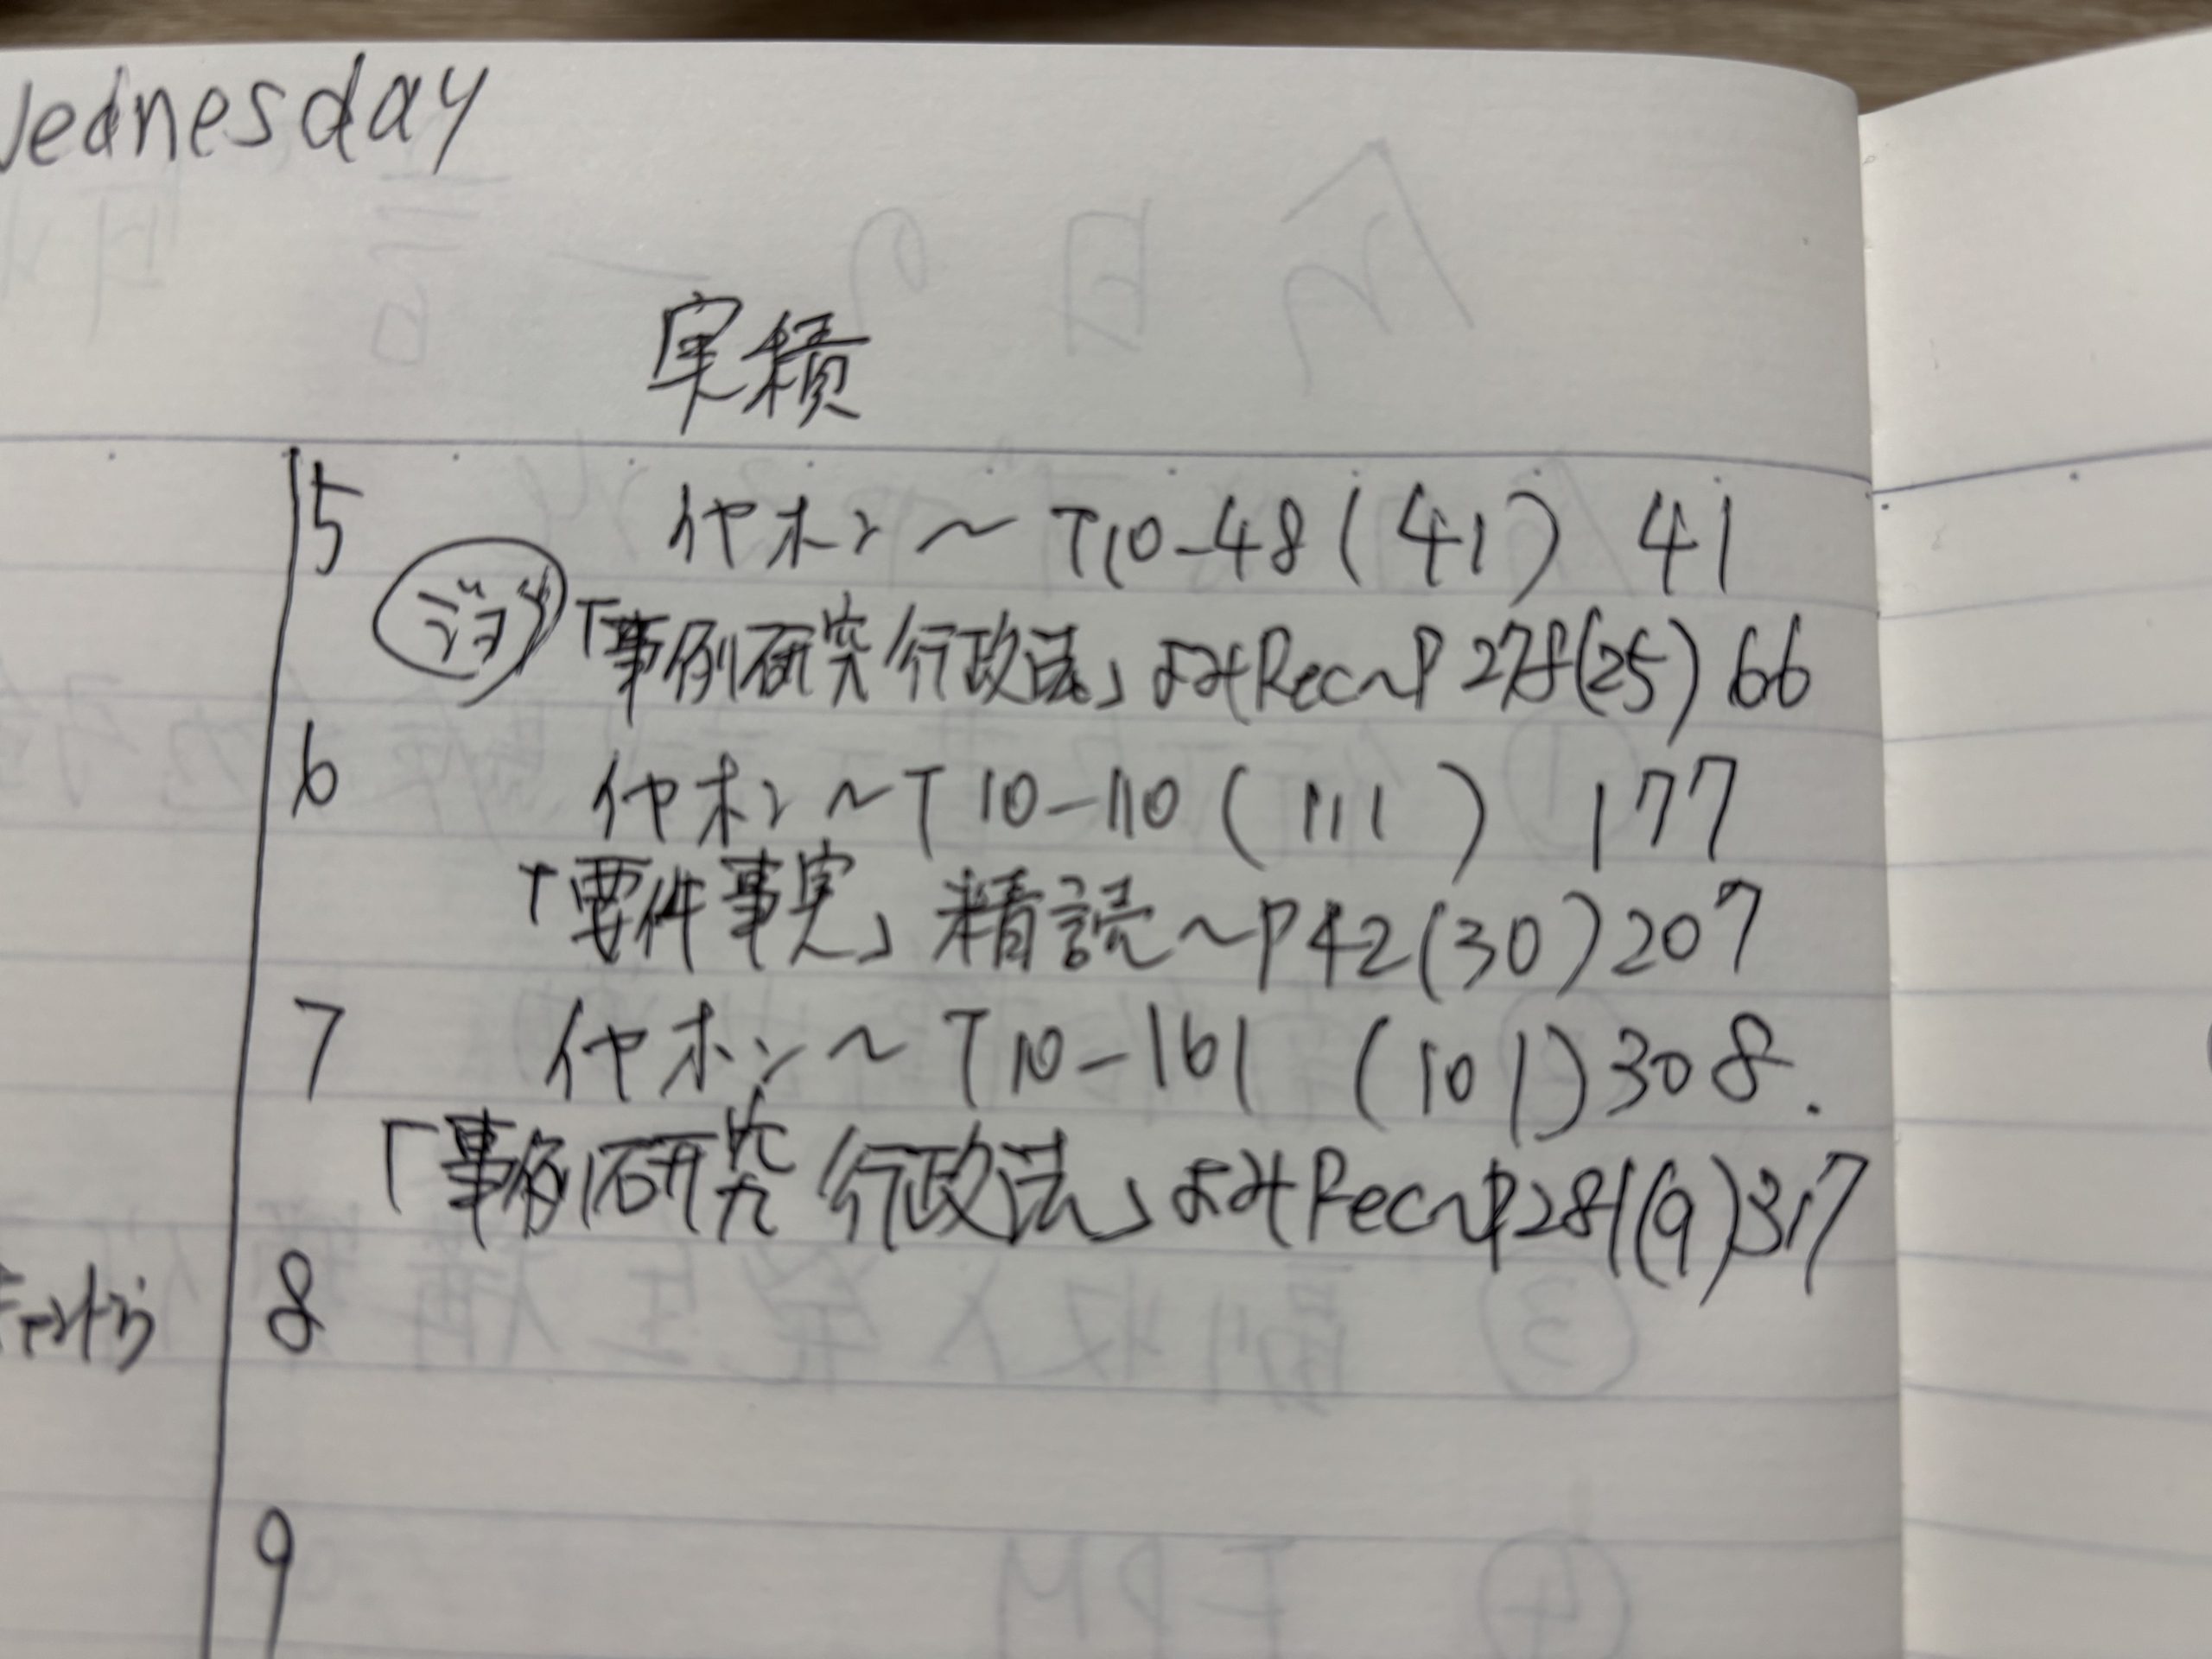 Wednesday
実績
5 イヤホン～T10-48(41) 41
ジョグ 「事例研究行政法」よみRec～P278(25) 66
6 イヤホン～T10-110(111) 177
「要件事実」精読～P42(30) 207
7 イヤホン～T10-161 (101) 308.
「事例研究行政法」よみRec～P281(9) 317
8
9